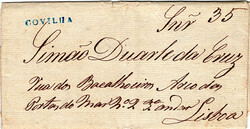 COVILHA
Snr 35
Simão Duarte da Cruz
Rua dos Bacalhoeiros Arco das
Portas do Mar No 2 2o andar
Lisboa